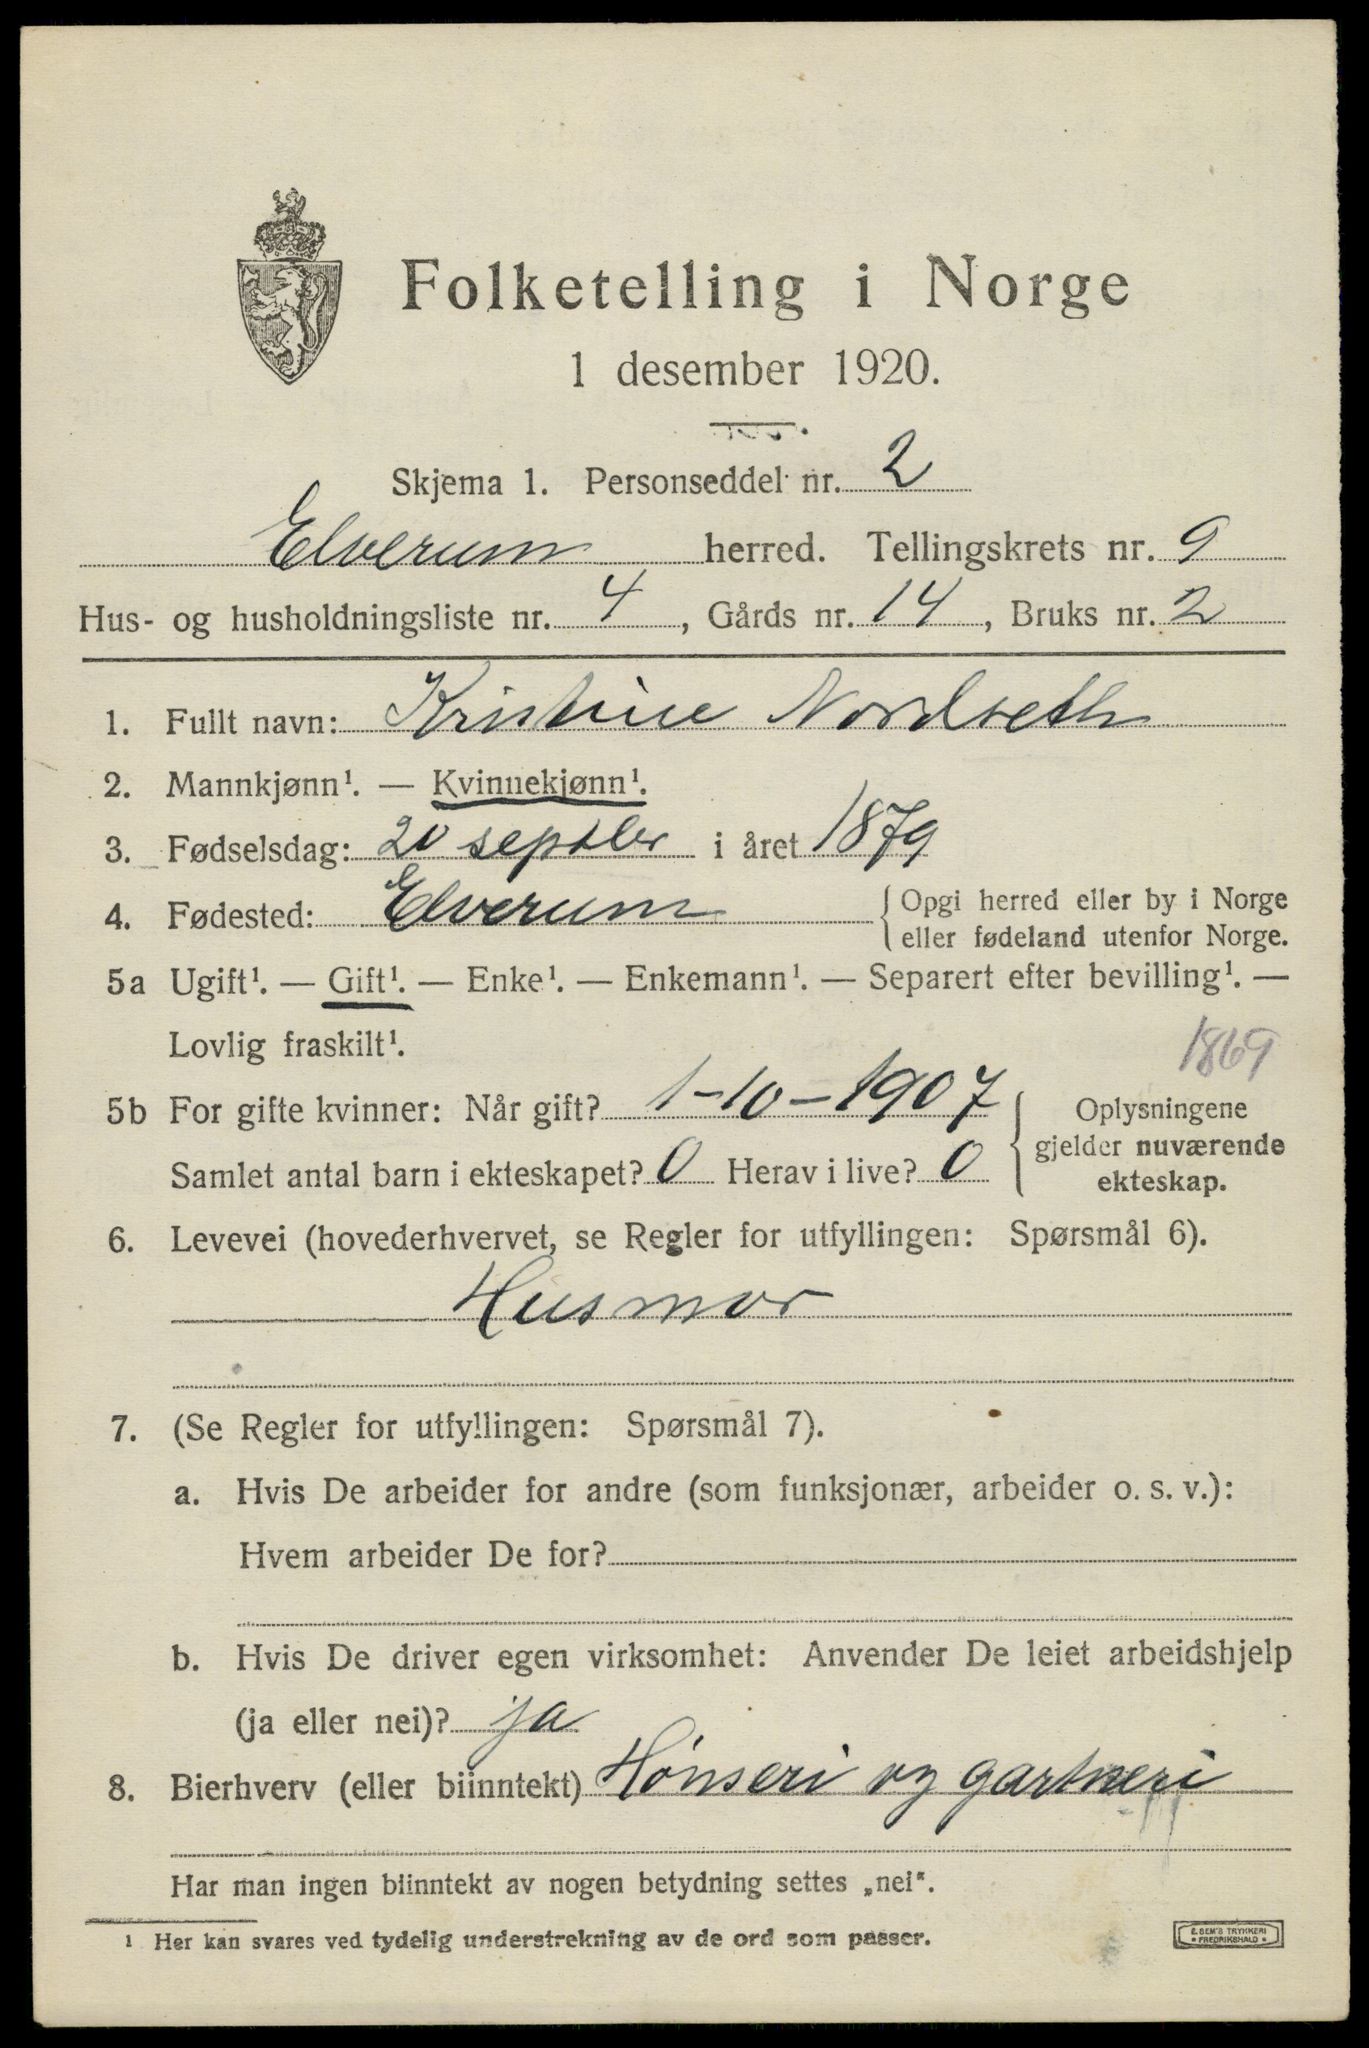 Folketelling i Norge
1 desember 1920.
Skjema 1. Personseddel nr. 2
Elverum herred. Tellingskrets nr. 9
Hus- og husholdningsliste nr. 4, Gårds nr. 14, Bruks nr. 2
1. Fullt navn: Kristine Nordseth
2. Mannkjønn¹. — Kvinnekjønn¹.
3. Fødselsdag: 20 septbr i året 1879
4. Fødested: Elverum { Opgi herred eller by i Norge
eller fødeland utenfor Norge.
5a Ugift¹. — Gift¹. — Enke¹. — Enkemann¹. — Separert efter bevilling¹. —
Lovlig fraskilt¹.
1869
5b For gifte kvinner: Når gift? 1-10-1907 { Oplysningene
gjelder nuværende
ekteskap.
Samlet antal barn i ekteskapet? 0 Herav i live? 0
6. Levevei (hovederhvervet, se Regler for utfyllingen: Spørsmål 6).
Husmor
7. (Se Regler for utfyllingen: Spørsmål 7).
a. Hvis De arbeider for andre (som funksjonær, arbeider o. s. v.):
Hvem arbeider De for?
b. Hvis De driver egen virksomhet: Anvender De leiet arbeidshjelp
(ja eller nei)? ja
8. Bierhverv (eller biinntekt) Hønseri og gartneri
Har man ingen biinntekt av nogen betydning settes „nei“.
¹ Her kan svares ved tydelig understrekning av de ord som passer.
E. SEM'S TRYKKERI
* FREDRIKSHALD *